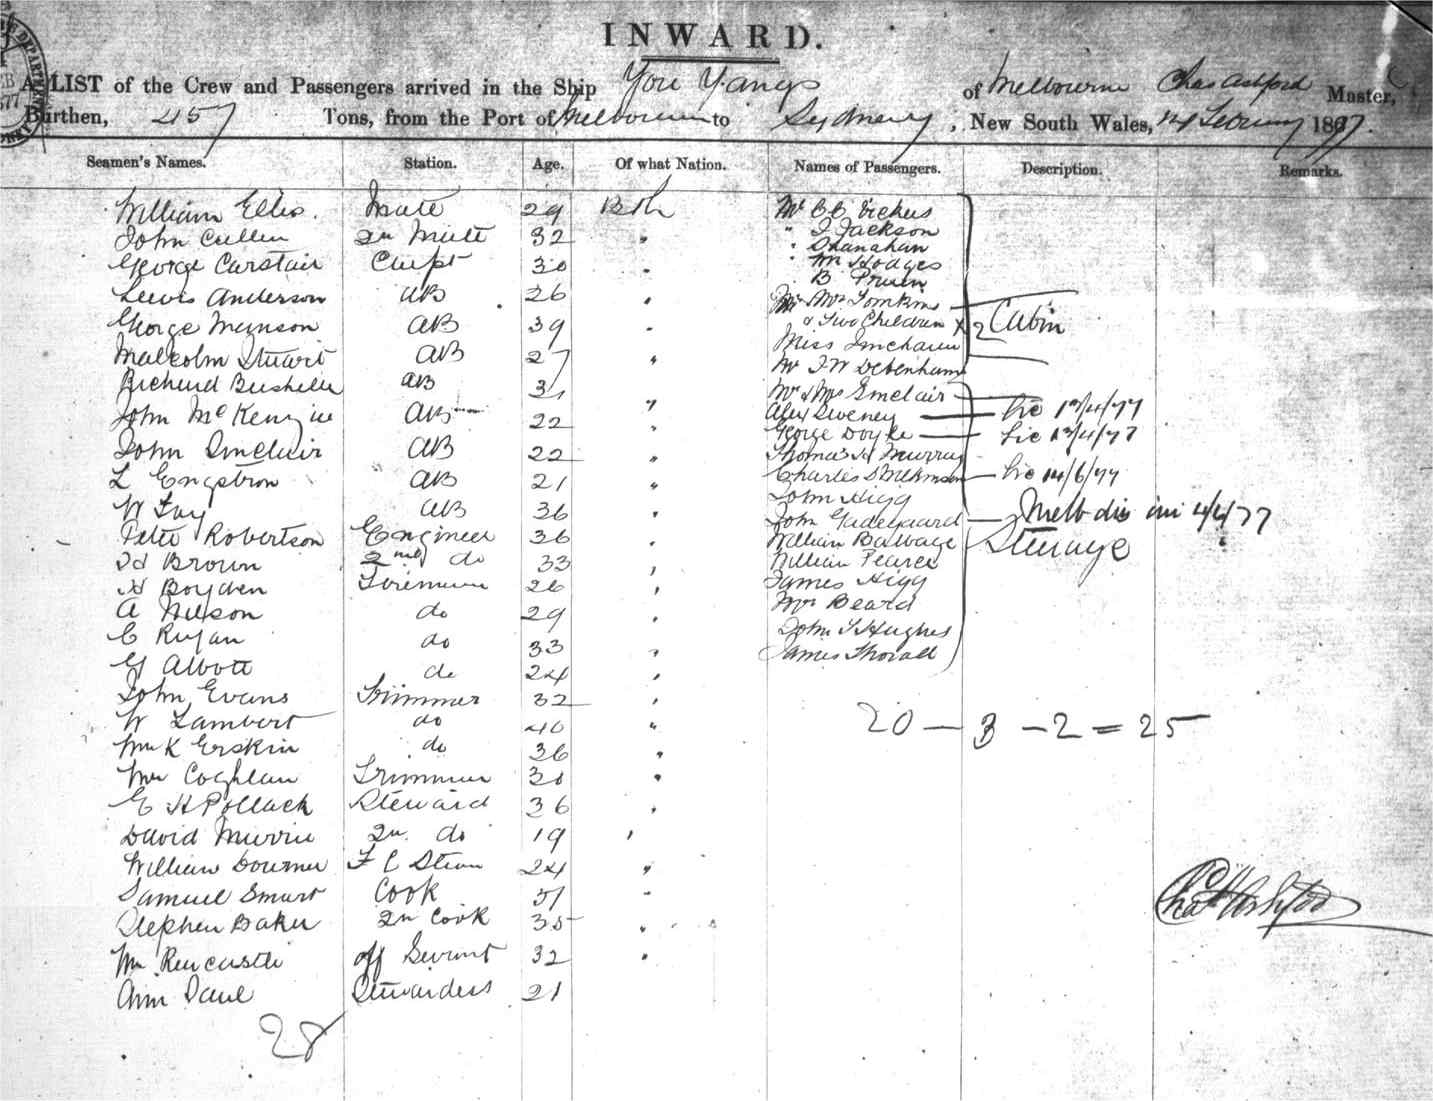 INWARD.
A LIST of the Crew and Passengers arrived in the Ship You Yangs of Melbourne Chas Ashford Master,
Burthen, 457 Tons, from the Port of Melbourne to Sydney, New South Wales, 14 February 1877.
Seamen's Names. Station. Age. Of what Nation. Names of Passengers. Description. Remarks.
William Ellis. Mate 29 Bth
John Cullen 2n Mate 32 "
George Carstair Carpt 30 "
Lewis Anderson AB 26 "
George Manson AB 39 "
Malcolm Stuart AB 27 "
Richard AB 31 "
John McKenzie AB 22 "
John Sinclair AB 22 "
L Engstrom AB 21 "
W Fay AB 36 "
Peter Robertson Engineer 36 "
Jd Brown 2nd do 33 "
H Boyden Fireman 26 "
A Nelson do 29 "
C Ryan do 33 "
G Abbott do 24 "
John Evans Trimmer 32 "
W Lambert do 40 "
Wm K Erskin do 36 "
Wm Coghlan Trimmer 30 "
G H Pollack Steward 36 "
David Murrie 2n do 19 "
William Bourner F C Stew 24 "
Samuel Smart Cook 51 "
Stephen Baker 2n Cook 35 "
Wm Rencastle off Servant 32 "
Ann Paul Stewardess 21
28
Mr C C Vickers
" J Jackson
" Shanahan
" Wm Hodges
B
Mr Mrs Tomkins
& Two Children x 2 Cabin
Miss
Mr J W Debenham
Mr & Mrs Sinclair
Alex Sweney — 13/4/77
George Doyle — 13/4/77
Thomas H Murray
Charles — 14/6/77
John Higg
John — Melb 4/4/77
William Babbage Steerage
William Pearce
James Higg
Mrs Beard
John S Hughes
James Thorall
20 — 3 — 2 = 25
Chas Ashford